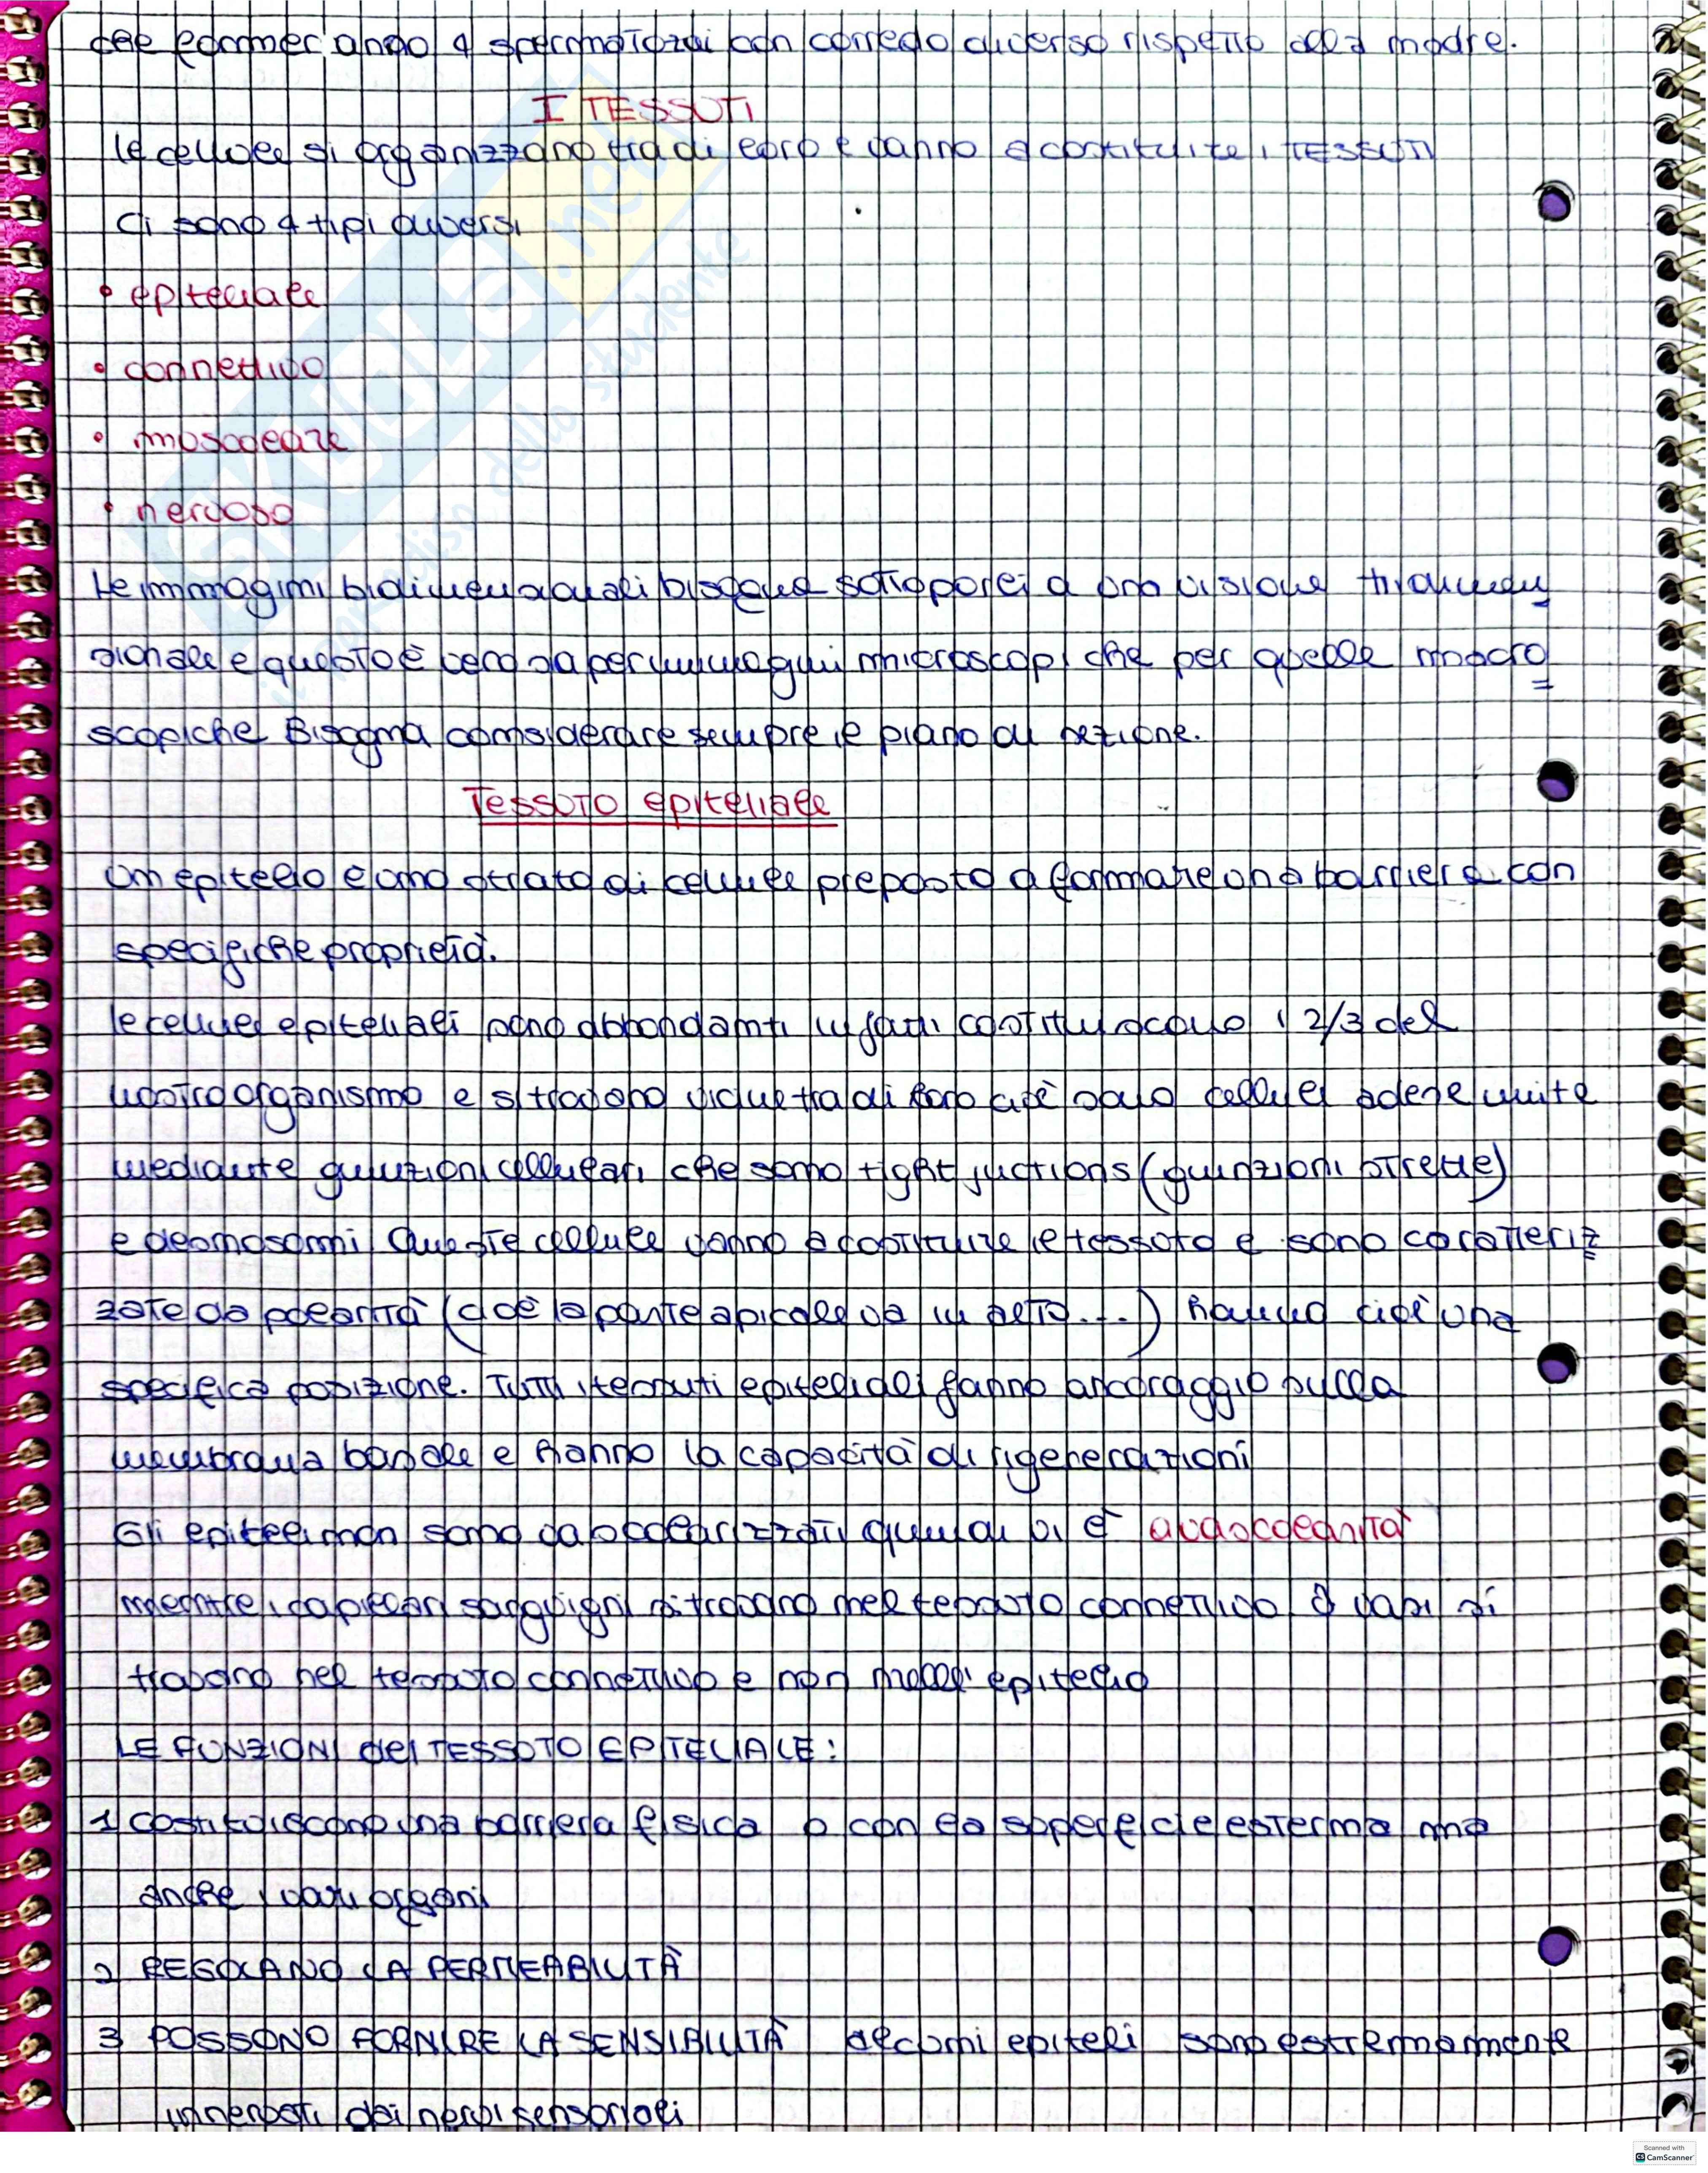 che formeranno 4 spermatozoi con corredo diverso rispetto alla madre.
I TESSUTI
le cellule si organizzano tra di loro e vanno a costituire i TESSUTI
Ci sono 4 tipi diversi
• epiteliale
• connettivo
• muscolare
• nervoso
Le immagini bidimensionali bisogna sottoporci a una visione tridimen
sionale e questo è vero sia per immagini microscopi che per quelle macro
scopiche Bisogna considerare sempre il piano di sezione.
Tessuto epiteliale
Un epitelio è uno strato di cellule preposto a formare una barriera con
specifiche proprietà.
le cellule epiteliali sono abbondanti infatti costituiscono i 2/3 del
nostro organismo e si trovono vicine tra di loro cioè sono cellule adese unite
mediante giunzioni cellulari che sono tight juctions (guinzioni strette)
e desmosomi Queste cellule vanno a costituire il tessuto e sono caratteriz
zate da polarità (cioè la parte apicale va in alto...) hanno cioè una
specifica posizione. Tutti i tessuti epiteliali fanno ancoraggio sulla
membrana basale e hanno la capacità di rigenerazioni
Gli epiteli non sono vascolarizzati quindi vi è avascolarità
mentre i capillari sanguigni si trovano nel tessuto connettivo I vasi si
trovano nel tessuto connettivo e non nell' epitelio
LE FUNZIONI del TESSUTO EPITELIALE:
1 Costituiscono una barriera fisica o con la superficie esterna ma
anche i vari organi
2 REGOLANO LA PERMEABILITÀ
3 POSSONO FORNIRE LA SENSIBILITÀ alcuni epiteli sono estremamente
innervati dai nervi sensoriali
SKUOLA.net
il paradiso dello studente
Scanned with
CS CamScanner